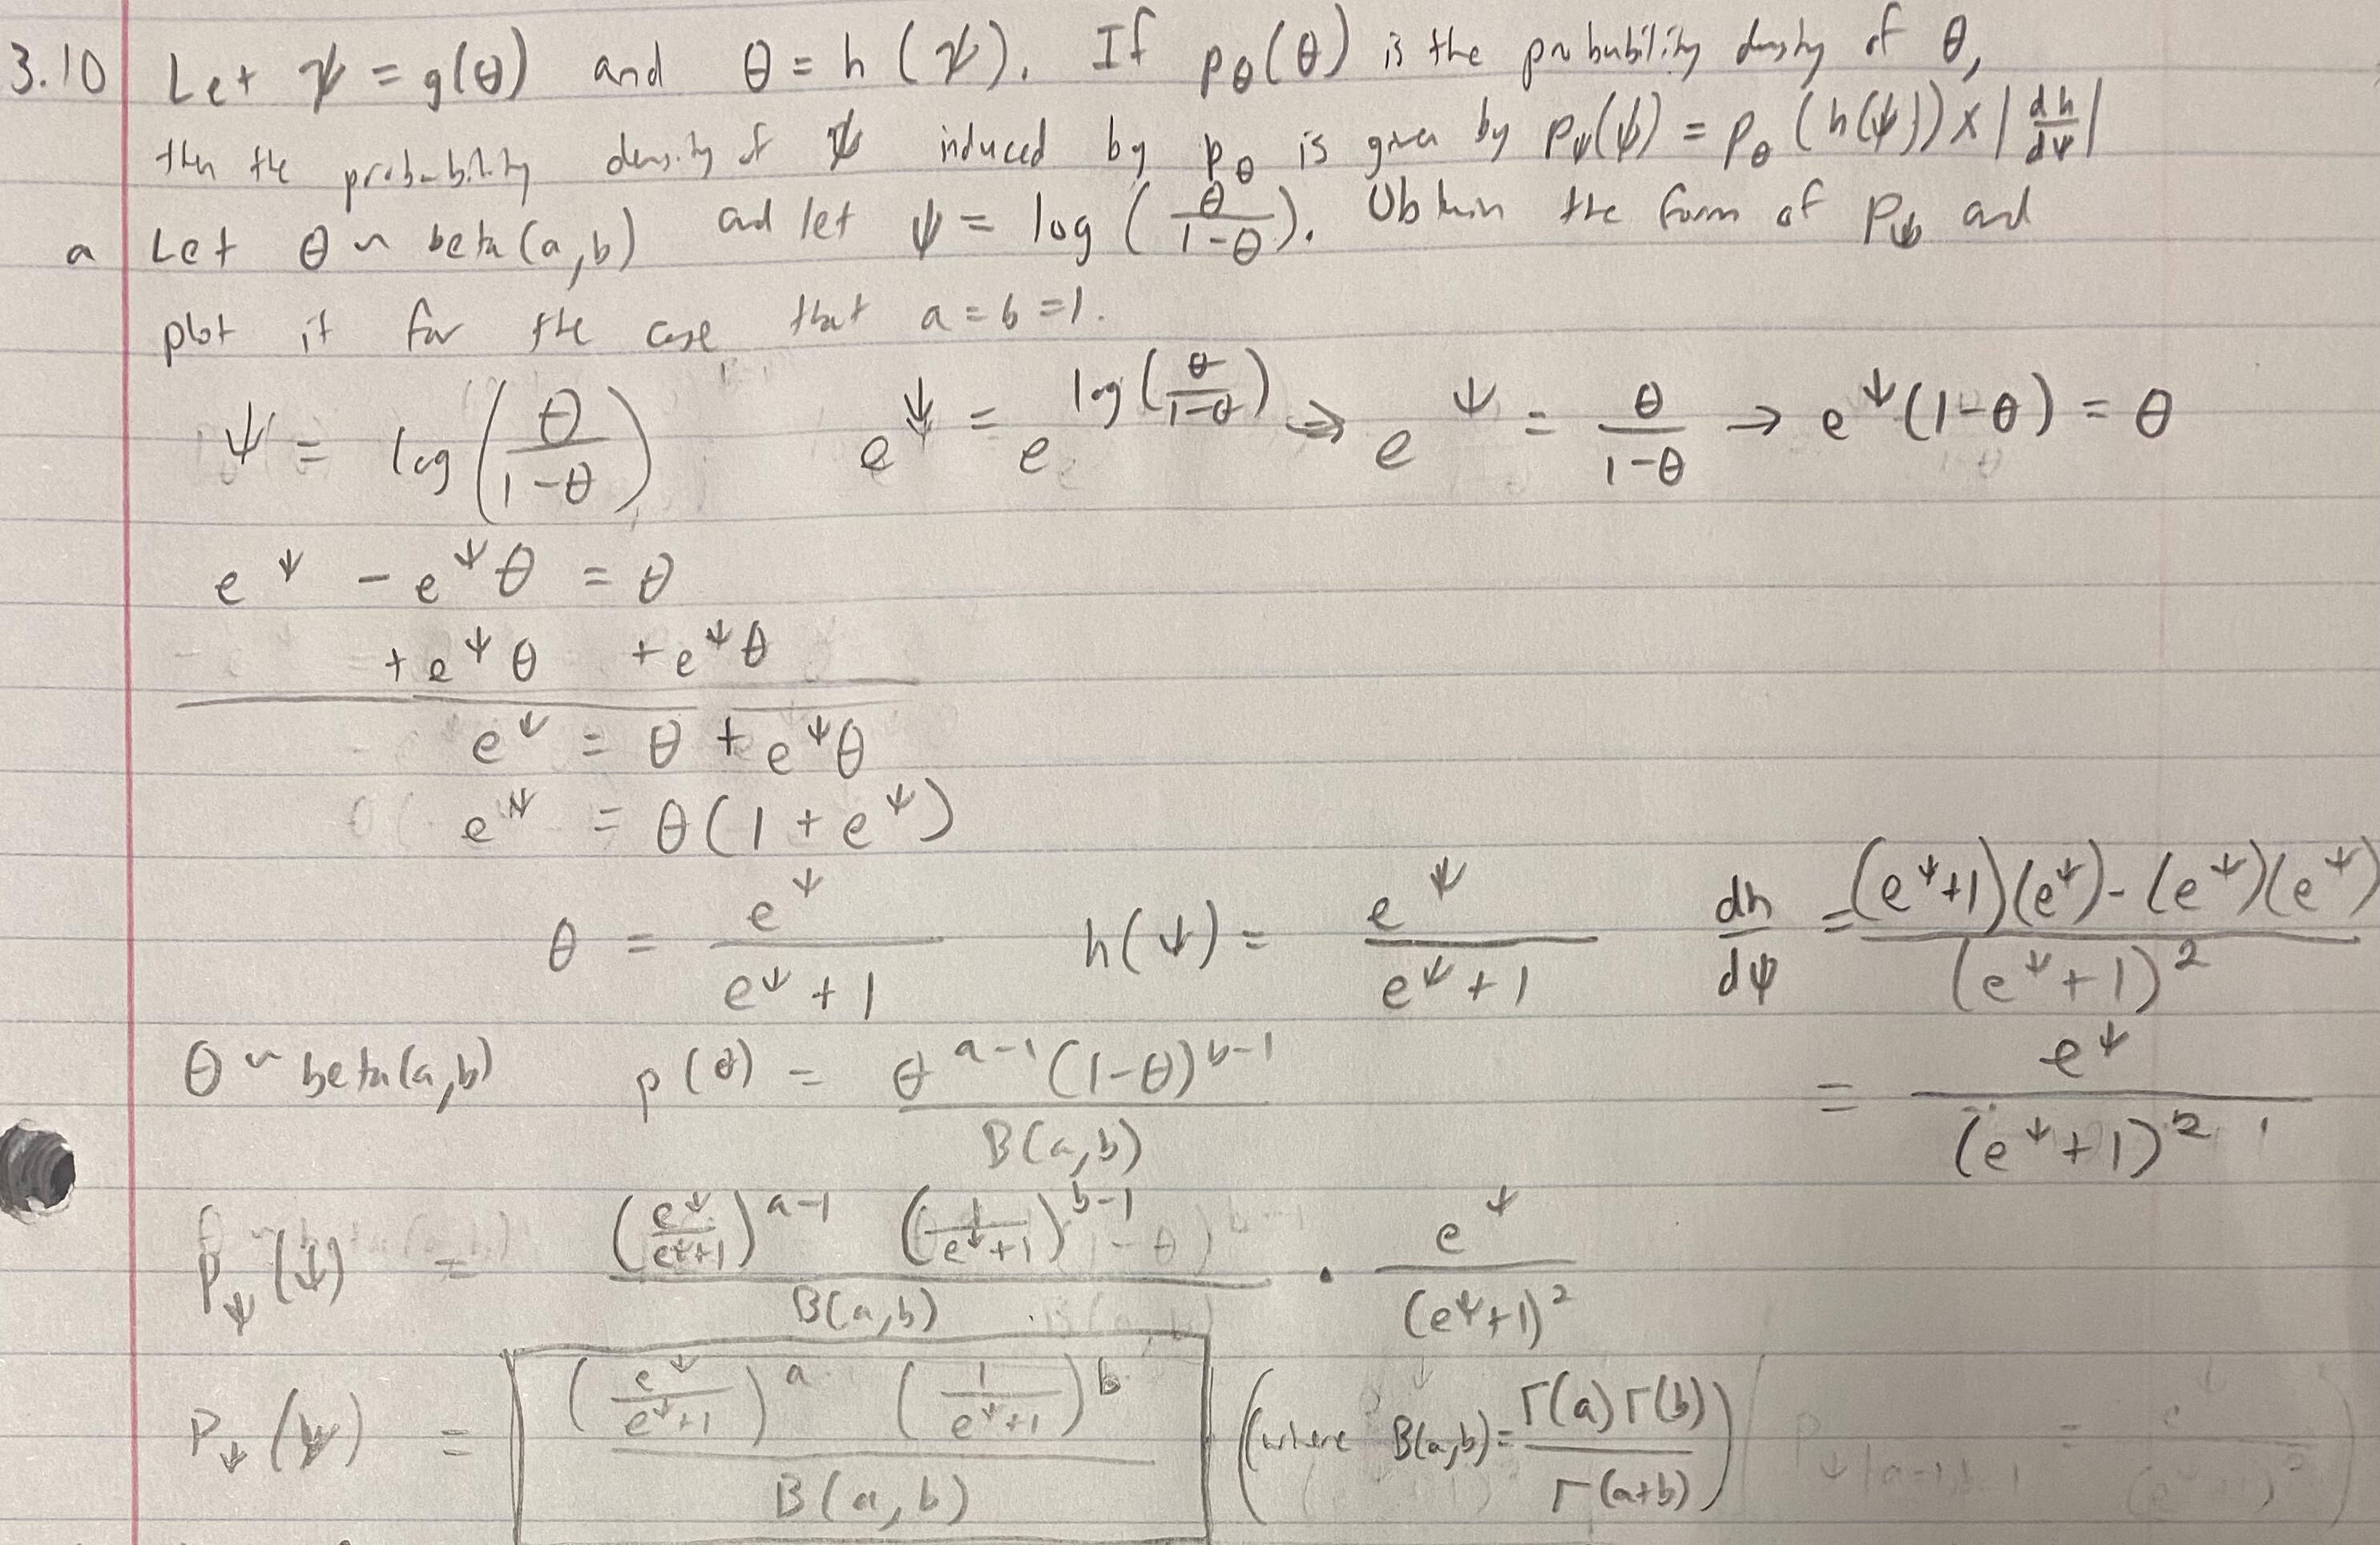 3.10 Let ψ = g(θ) and θ = h(ψ). If p_θ(θ) is the probability density of θ,
then the probability density of ψ induced by p_θ is given by p_ψ(ψ) = p_θ(h(ψ)) × |dh/dψ|
a Let θ ~ beta(a,b) and let ψ = log(θ/(1-θ)). Obtain the form of p_ψ and
plot it for the case that a = b = 1.
ψ = log(θ/(1-θ)) e^ψ = e^log(θ/(1-θ)) ⇒ e^ψ = θ/(1-θ) → e^ψ(1-θ) = θ
e^ψ - e^ψ θ = θ
+ e^ψ θ + e^ψ θ
e^ψ = θ + e^ψ θ
e^ψ = θ(1 + e^ψ)
θ = e^ψ/(e^ψ + 1) h(ψ) = e^ψ/(e^ψ + 1) dh/dψ = ((e^ψ+1)(e^ψ) - (e^ψ)(e^ψ))/(e^ψ + 1)^2
= e^ψ/(e^ψ + 1)^2
θ ~ beta(a,b) p(θ) = θ^(a-1) (1-θ)^(b-1)/B(a,b)
p_ψ(ψ) = (e^ψ/(e^ψ+1))^(a-1) (1/(e^ψ+1))^(b-1)/B(a,b) · e^ψ/(e^ψ+1)^2
P_ψ(ψ) = (e^ψ/(e^ψ+1))^a (1/(e^ψ+1))^b/B(a,b) (where B(a,b) = Γ(a)Γ(b)/Γ(a+b))